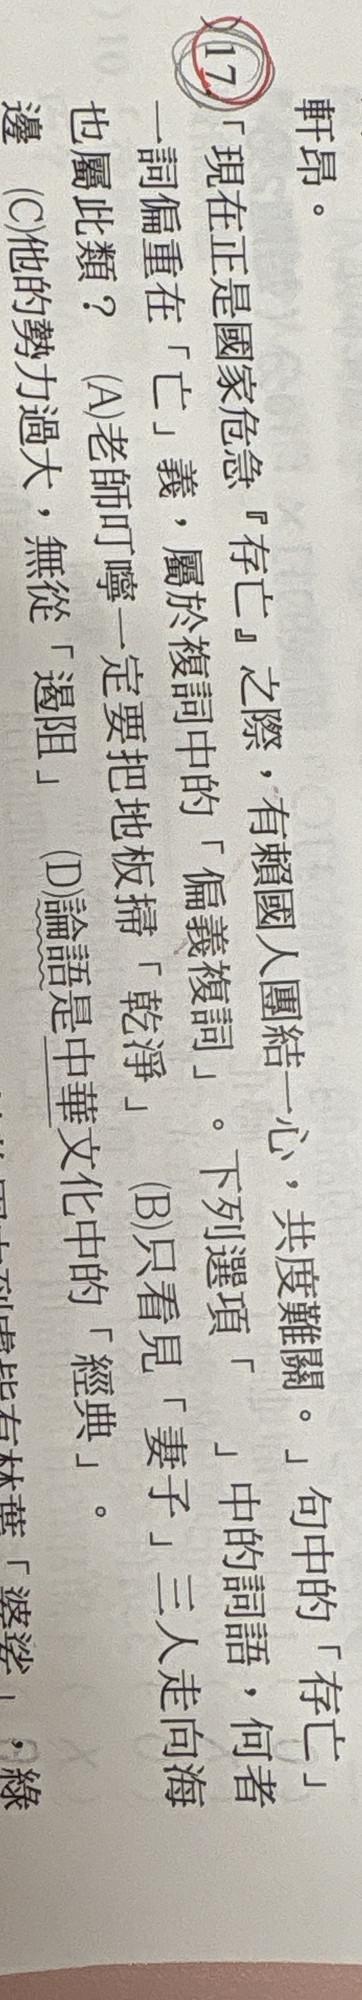 軒昂。
17.「現在正是國家危急『存亡』之際，有賴國人團結一心，共度難關。」句中的「存亡」
一詞偏重在「亡」義，屬於複詞中的「偏義複詞」。下列選項「　」中的詞語，何者
也屬此類？　(A)老師叮嚀一定要把地板掃「乾淨」　(B)只看見「妻子」三人走向海
邊　(C)他的勢力過大，無從「遏阻」　(D)論語是中華文化中的「經典」。
皆有林葉「婆娑」，綠